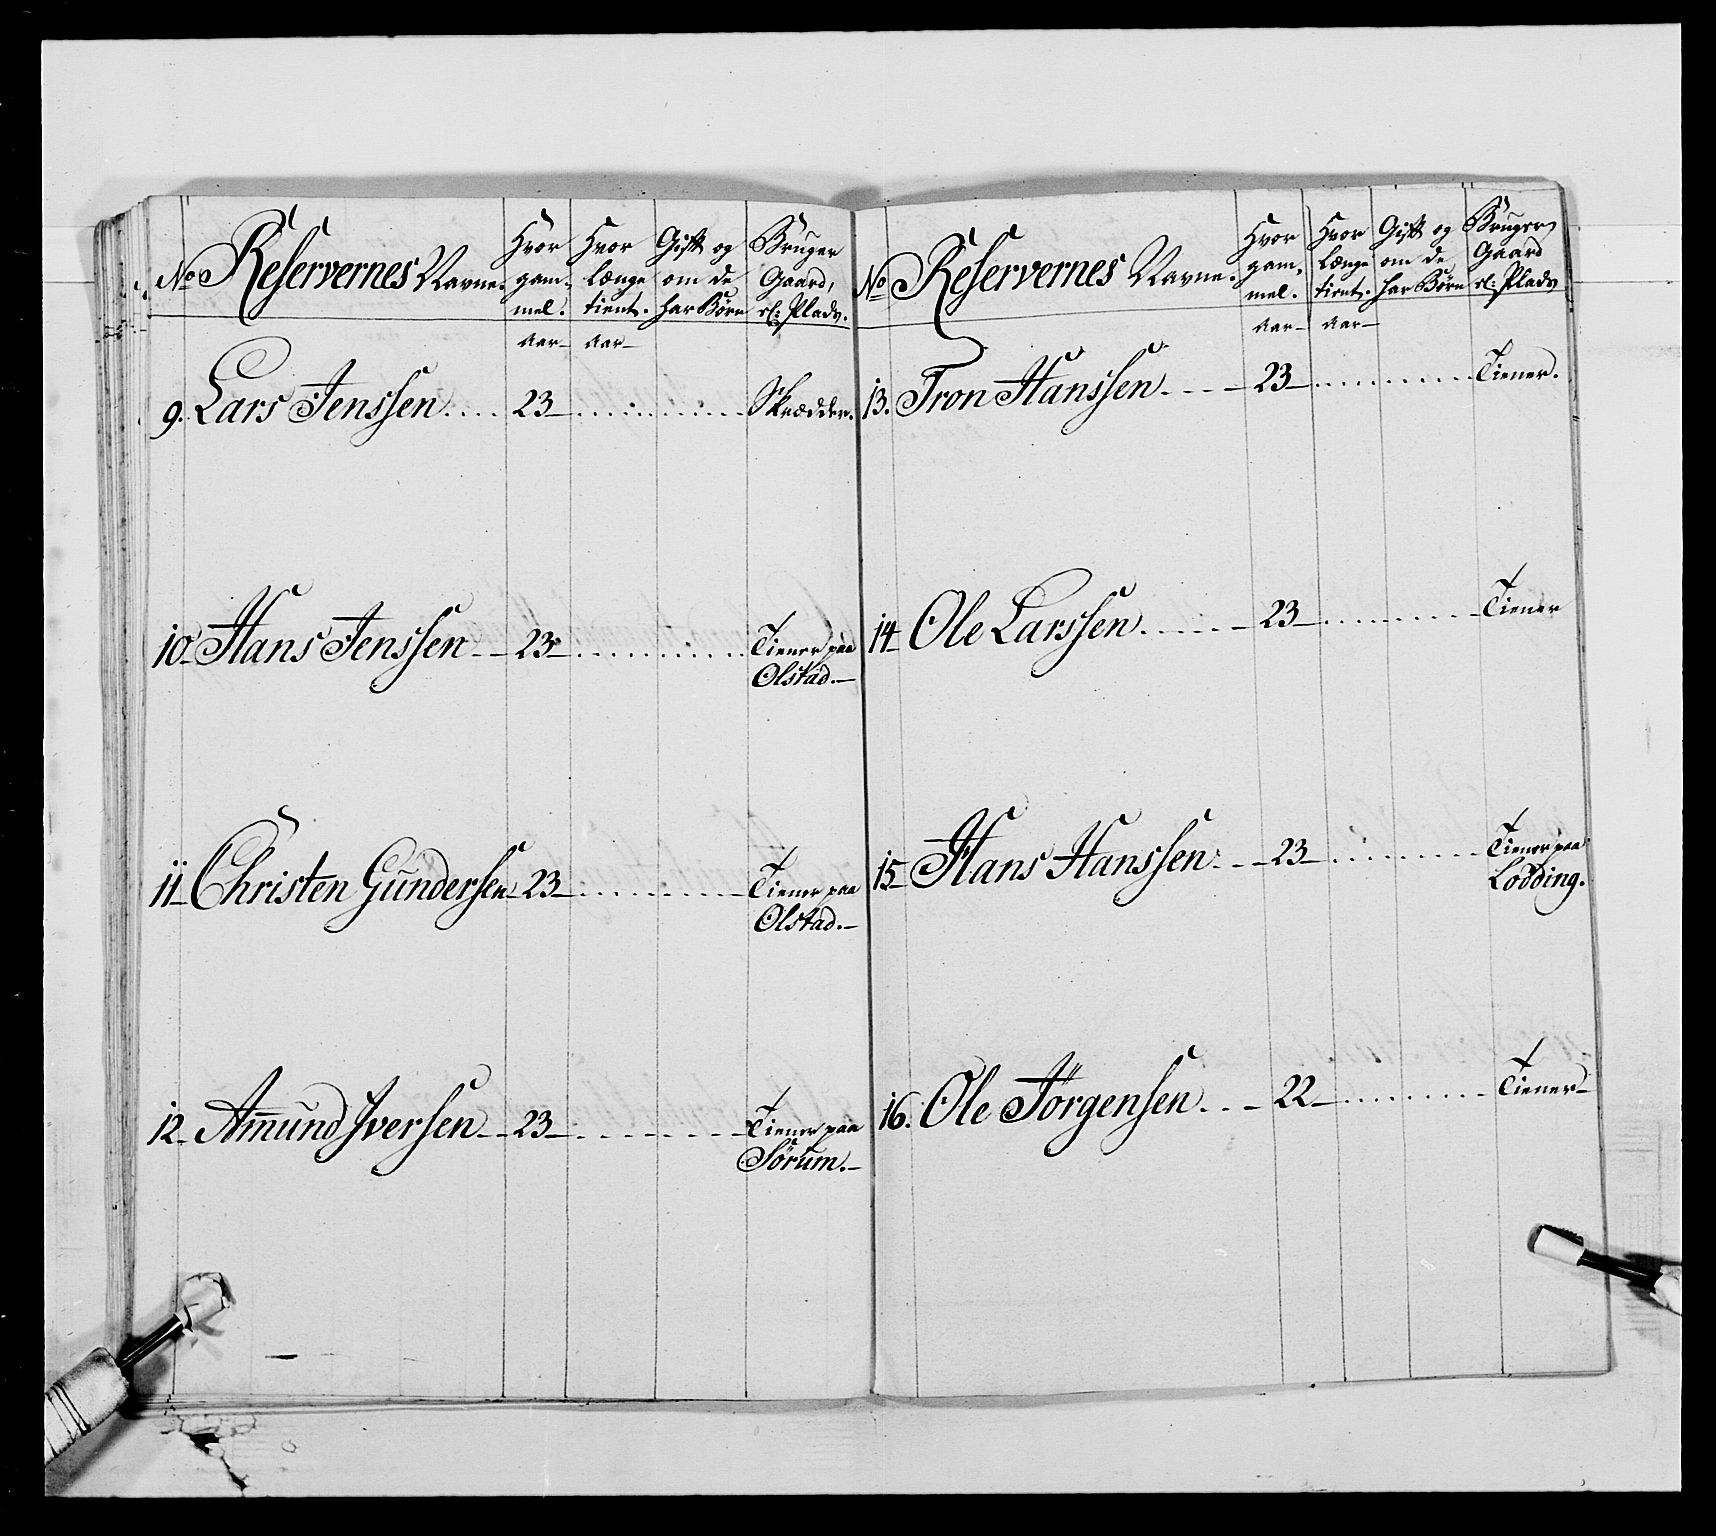 No Reservernes Navne. Hvor gam- mel. Hvor længe tient. Gift og om de har Børn Bruger Gaard, el: Plads.
Aar Aar
9. Lars Jenssen .... 23 ........ Skrædder.
10. Hans Jenssen 23 ........ Tiener paa
Olstad.
11 Christen Gundersen 23 ........ Tiener paa
Olstad.
12 Amund Iversen 23 ........ Tiener paa
Sørum.
No Reservernes Navne. Hvor gam- mel. Hvor længe tient. Gift og om de har Børn Bruger Gaard el: Plads
Aar Aar
13. Tron Hanssen .... 23 ........ Tiener.
14 Ole Larssen .... 23 ........ Tiener
15 Hans Hanssen 23 ........ Tiener paa
Lodding.
16. Ole Jörgensen ... 22 ........ Tiener